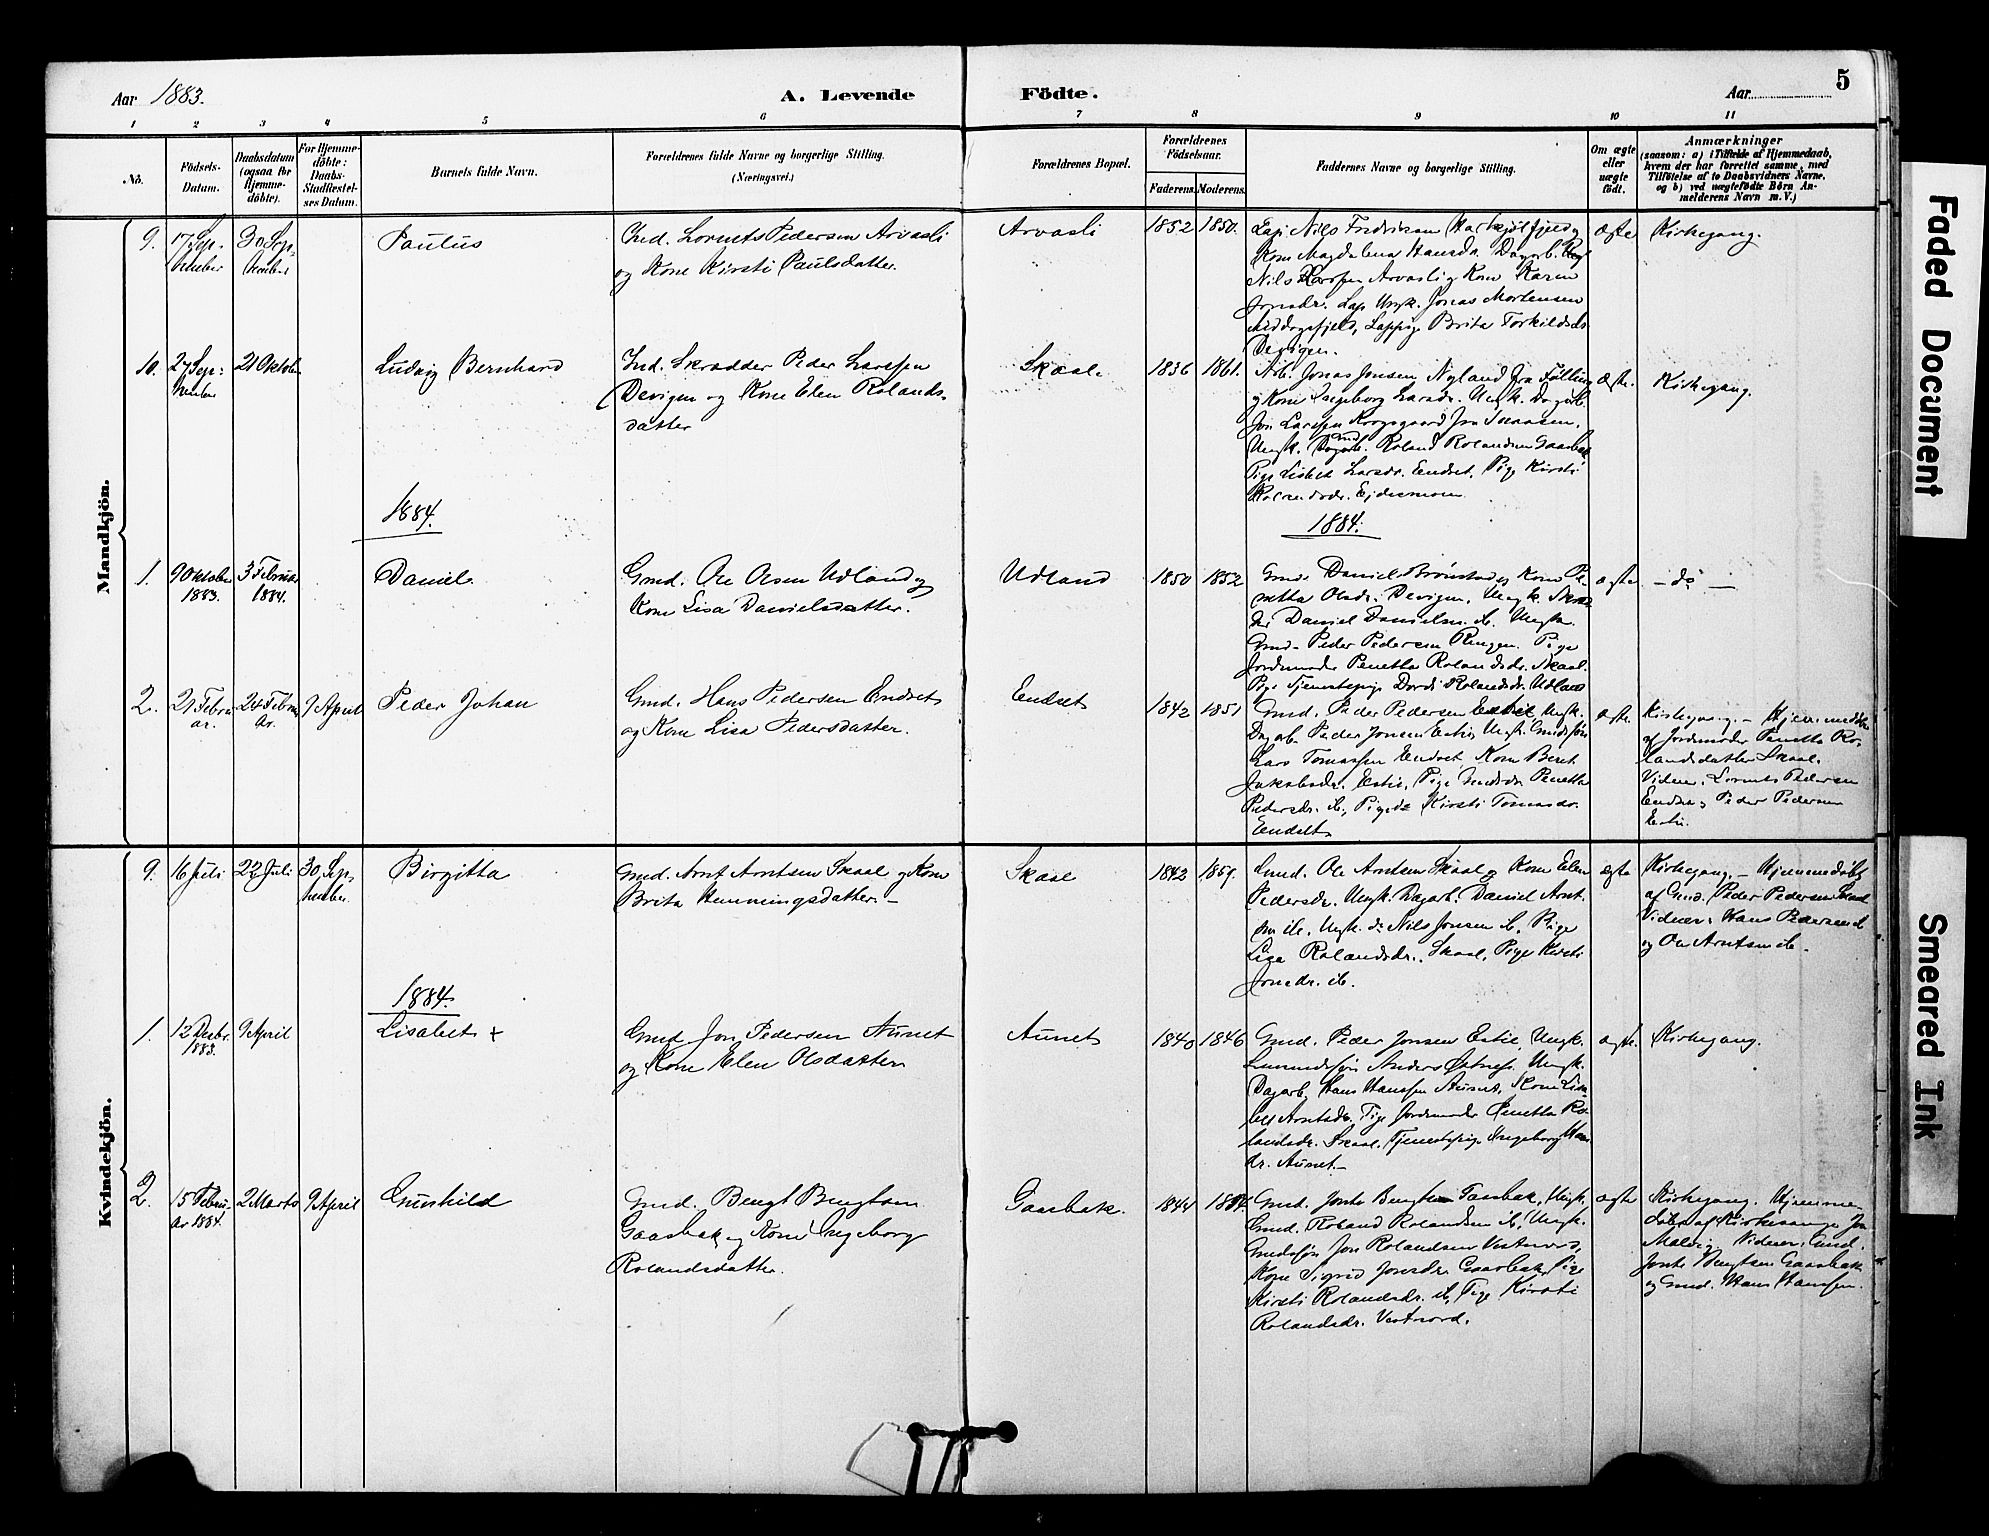 5
Aar 1883.
A. Levende Födte.
Aar
1 2 3 4 5 6 7 8 9 10 11
No.
Födsels-
Datum.
Daabsdatum
(ogsaa for
Hjemme-
döbte).
For Hjemme-
döbte:
Daabs-
Stadfæstel-
ses Datum.
Barnets fulde Navn.
Forældrenes fulde Navne og borgerlige Stilling.
(Næringsvei.)
Forældrenes Bopæl.
Forældrenes
Födselsaar.
Faderens. Moderens.
Faddernes Navne og borgerlige Stilling.
Om ægte
eller
uægte
födt.
Anmærkninger
(saasom: a) i Tilfælde af Hjemmedaab,
hvem der har forrettet samme, med
Tilföielse af to Daabsvidners Navne,
og b) ved uægtefödte Börn An-
melderens Navn m. V.)
Mandkjön.
9.
17 Sep-
tember
30 Sep-
tember
Paulus
Ind. Lornts Pedersen Arvasli
og Kone Kirsti Paulsdatter.
Arvasli
1852 1850.
Lap. Nils Fredriksen
Kone Magdalena Hansdr. Dagarb.
Nils Arvasli og Kone Karen
Jonsdr. Lap Ungk. Jonas Mortensen
Middagsfjeld, Lappige Brita Torkildsdr.
Devigen.
ægte
Kirkegang.
10.
27 Sep-
tember
21 Oktober
Ludvig Bernhard
Ind. Skrædder Peder Larssen
Devigen og Kone Elen Rolands-
datter
Skaal.
1836 1861.
Arb. Jonas Jonsen Nyland fra Følling
og Kone Ingeborg Larsdr. Ungk. Dagarb.
Jon Larssen fra Snaasen.
Ungk. Dagarb. Roland Rolandsen Gaasbak
Pige Lisbet Larsdr. Endset, Pige Kirsti
Rolandsdr. Ejdesmoen
ægte.
Kirkegang.
1884.
1884.
1.
9 Oktober
1883.
3 Februar
1884.
Daniel
Gmd. Ole Olsen Udland og
Kone Lisa Danielsdatter.
Udland
1850 1852
Gmd. Daniel Brønstad og Kone Pe-
netta Olsdr. Devigen, Ungk. Skræd-
der Daniel Danielsen ib. Ungk.
Gmd. Peder Pedersen Ringen. Pige
Jordmoder Penetta Rolandsdr. Skaal.
Pige Tjenestepige Dordi Rolandsdr. Udland
ægte
- do -
2.
21 Febru-
ar.
24 Febru-
ar.
9 April
Peder Johan
Gmd. Hans Pedersen Endset
og Kone Lisa Pedersdatter.
Endset
1842 1851
Gmd. Peder Pedersen Estil, Ungk.
Dagarb. Peder Jonsen Estil, Ungk. Gmdssøn
Lars Tomassen Endset, Kone Beret
Jakobsdr. Estil, Pige Gmdsdr. Penetta
Pedersdr. ib, Pige do Kirsti Tomasdr.
Endset
ægte.
Kirkegang. - Hjemmedøbt
af Jordmoder Penetta Ro-
landsdatter Skaal.
Vidner, Lornts Pedersen
Endset og Peder Pedersen
Estil.
Kvindekjön.
9.
16 Juli
22 Juli
30 Sep-
tember.
Birgitta
Gmd. Arnt Arntsen Skaal og Kone
Brita Henningsdatter. -
Skaal
1842
Gmd. Ole Arntsen Skaal og Kone Elen
Pedersdr. Ungk. Dagarb. Daniel Arnt-
sen ib. Ungk. do Nils Jonsen ib. Pige
Lisa Rolandsdr. Skaal, Pige Kirsti
Jonsdr. ib.
ægte
Kirkegang. - Hjemmedøbt
af Gmd. Peder Pedersen Skaal
Vidner: Hans Pedersen ib
og Ole Arntsen ib.
1884.
1.
12 Decbr.
1883.
9 April
Lisabet +
Gmd Jon Pedersen Aunet
og Kone Elen Olsdatter
Aunet
1840 1846
Gmd. Peder Jonsen Estil, Ungk.
Anders Ungk.
Dagarb. Hans Hanssen Aunet, Kone Lisa-
bet Arntsdr., Pige Jordmoder Penetta Ro-
landsdr. Skaal, Tjenestepige Ingeborg Hans-
dr. Aunet. -
ægte.
Kirkegang.
2.
15 Febru-
ar 1884.
2 Marts
9 April
Gunhild
Gmd. Bengt Bengtsen
Gaasbak og Kone Ingeborg
Rolandsdatter.
Gaasbak.
1844
Gmd. Jonts Bengtsen Gaasbak, Ungk.
Gmd. Roland Rolandsen ib, Ungk.
Gmdssøn Jon Rolandsen Vestnord,
Kone Sigrid Jonsdr. Gaasbak, Pige
Kirsti Rolandsdr. ib, Pige Kirsti
Rolandsdr. Vestnord.
ægte
Kirkegang. Hjemme-
døbt af Kirkesanger Jon
Malvig. Vidner: Gmd.
Jonts Bengtsen Gaasbak
og Gmd. Hans Hanssen.
Faded Document
Smeared Ink